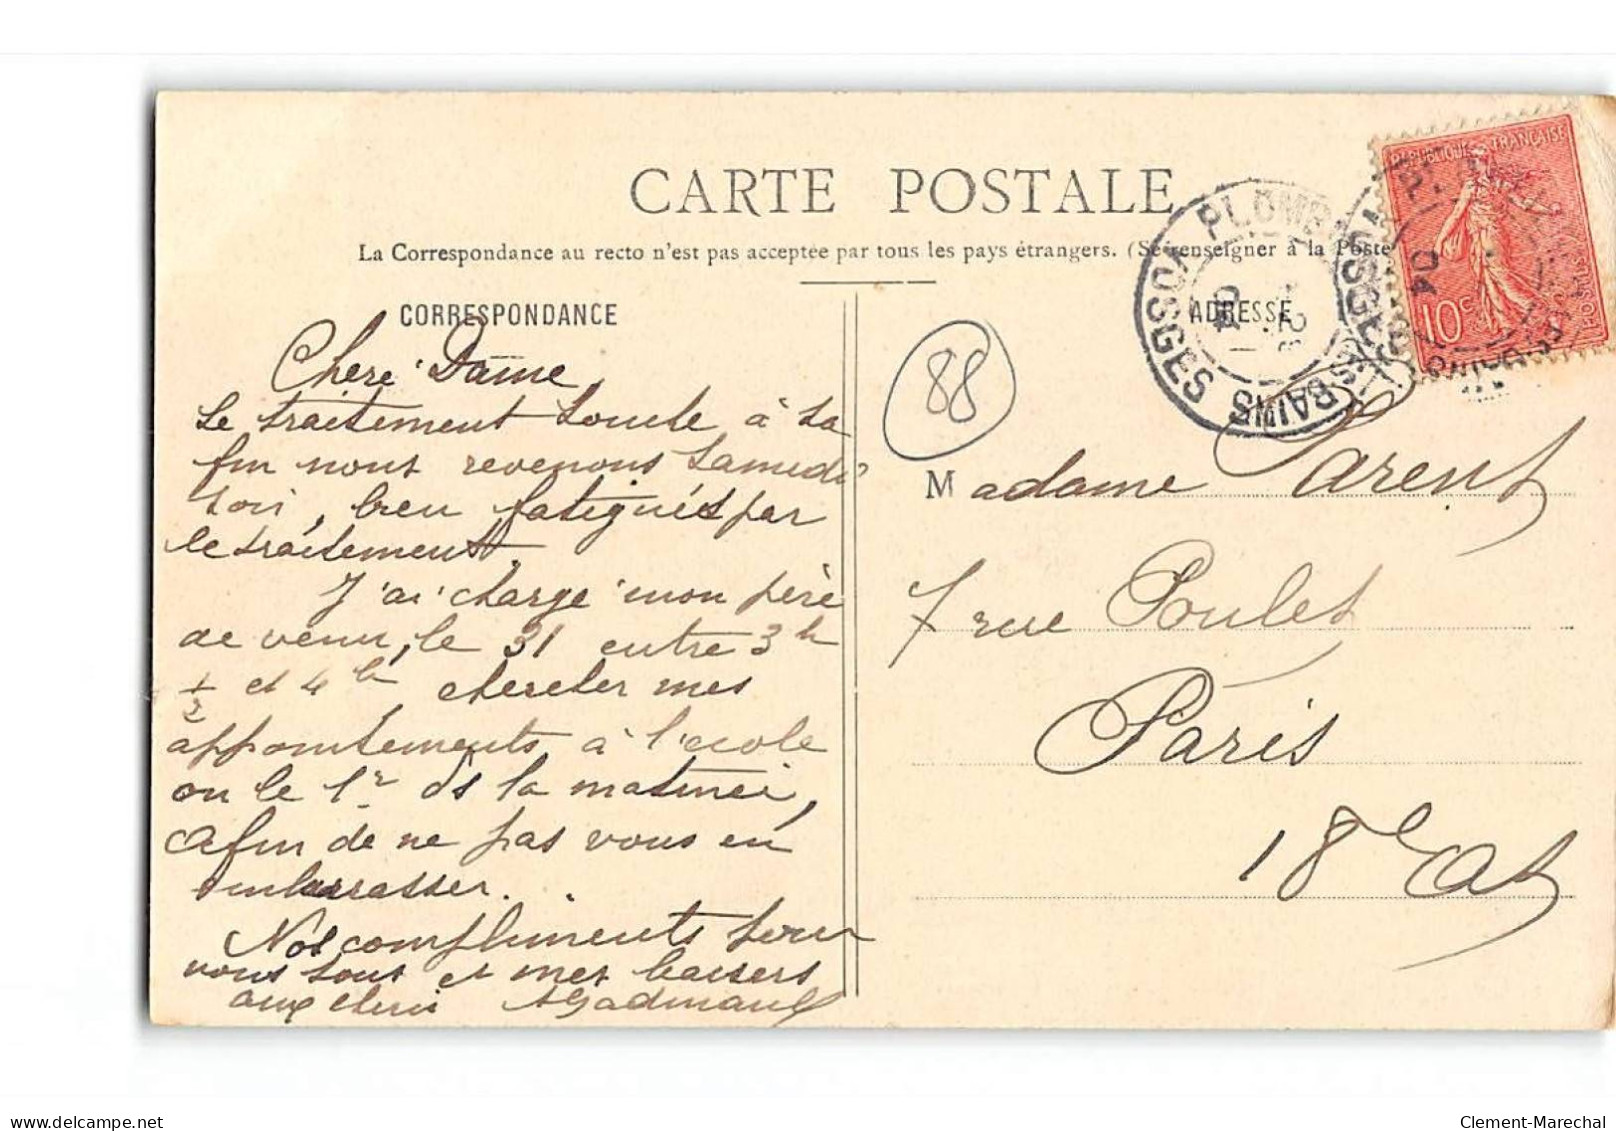 CARTE POSTALE
La Correspondance au recto n'est pas acceptée par tous les pays étrangers. (Se renseigner à la Poste
CORRESPONDANCE
Chere Dame
Le traitement touche à sa
fin nous revenons samedi
soir, bien fatigués par
le traitement
J'ai charge mon père
de venir, le 31 entre 3 h
1/2 et 4 h chercher mes
appointements à l'ecole
ou le 1r ds la matinée,
afin de ne pas vous en
embarrasser.
Nos compliments pour
vous tous et mes baisers
aux cheri
88
ADRESSE
PLOMB LES BAINS
VOSGES
04
REPUBLIQUE FRANÇAISE
10c
POSTES
Madame Parent
7 rue Poulet
Paris
18e
Clement-Marechal